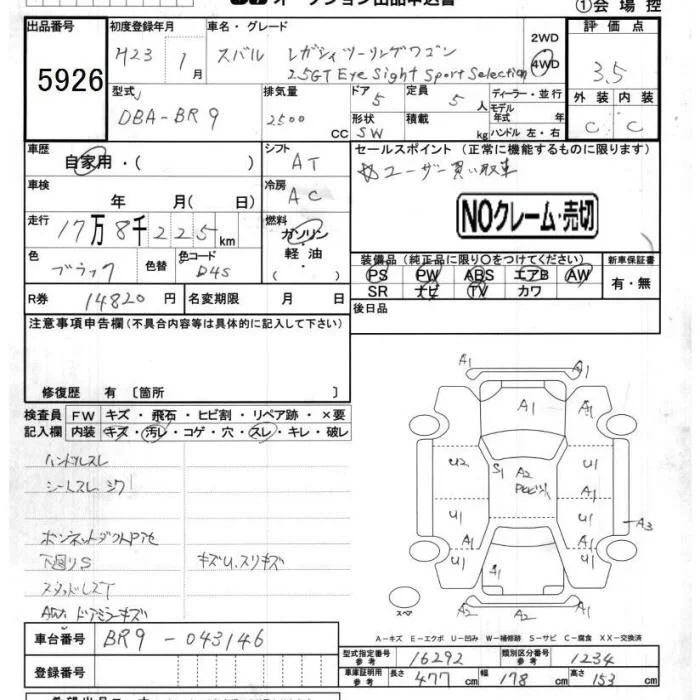 オークション出品申込書
①会場控
出品番号 初度登録年月 車名・グレード 2WD 評価点
5926 H23 1月 スバル レガシィツーリングワゴン 4WD 3.5
2.5GT Eye Sight Sport Selection
型式 排気量 ドア 5 定員 5人 ディーラー・並行 外装 内装
DBA-BR9 2500 CC 形状 SW 積載 kg モデル年式 年 ハンドル 左・右 C C
車歴 自家用・( ) シフト AT セールスポイント (正常に機能するものに限ります)
ユーザー買い取車
車検 年 月( 日) 冷房 AC
NOクレーム・売切
走行 17万8千225km 燃料 ガソリン・軽油・( )
色 ブラック 色替 色コード D4S
装備品 (純正品に限り○をつけてください) 新車保証書
PS PW ABS エアB AW 有・無
SR ナビ TV カワ
R券 14820円 名変期限 月 日 後日品
注意事項申告欄 (不具合内容等は具体的に記入して下さい)
修復歴 有 〔箇所 〕
検査員記入欄 FW キズ・飛石・ヒビ割・リペア跡・×要
内装 キズ・汚レ・コゲ・穴・スレ・キレ・破レ
ハンドルスレ
シートスレ
ボンネットダクト
下回りS キズU、スリキズ
スタッドレスT
AW、ドアミラーキズ
A1
A1 A1 A1
U2 S1 A2 U1
A1
U1 U1
A3
A1 A1
U1 S1 U1
スペア
A2 A2
A-キズ E-エクボ U-凹み W-補修跡 S-サビ C-腐食 XX-交換済
車台番号 BR9-043146
型式指定番号 参考 16292 類別区分番号 参考 1234
登録番号
車庫証明用 参考 長さ 477cm 幅 178cm 高さ 153cm